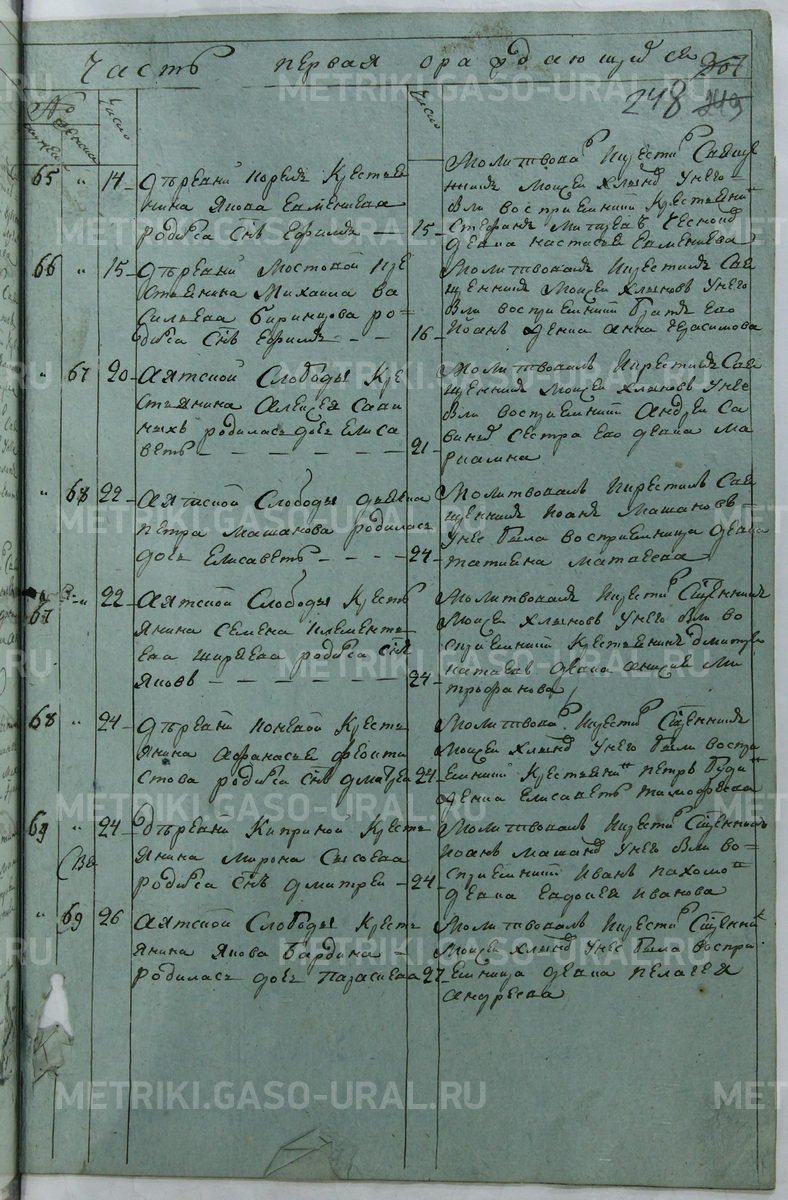 Часть первая ора ждающихся
248
Число
Число
65 " 14 дѣревни Корелъ Крестья
нина Якова Евмениева
родился снъ Ефимъ
15 Молитвовалъ и крестилъ Свяще
нникъ Моисей Хлыновъ у него
были восприемники крестьянинъ
Стефанъ
девка настасья Евмениева
66 " 15 дѣревни Мостовой кре
стьянина Михаила Ва
сильева ро
дился снъ Ефимъ
16 Молитвовалъ и крестилъ Свя
щенникъ Моисей Хлыновъ у него
были восприемники братъ его
Иоанъ девка анна Герасимова
" 67 20 Аятской Слободы кре
стьянина Алексея Сави
ныхъ родилась дочь Елиса
ветъ
21 Молитвовалъ и крестилъ Свя
щенникъ Моисей Хлыновъ у нее
были восприемники Андреи Са
виныхъ сестра его девка Ма
риамна
" 68 22 Аятской Слободы дьякона
петра Машанова родилась
дочь Елисаветъ
24 Молитвовалъ и крестилъ Свя
щенникъ Иоанъ Машановъ
у нее была восприемница девка
татиена матвеева
67 " 22 Аятской Слободы кресть
янина Семена Клементь
ева Ширяева родился снъ
Яковъ
24 Молитвовалъ и крестилъ Сщенникъ
Моисей Хлыновъ у него были во
сприемники крестьянинъ дмитреи
девка анисия Ми
трофанова
68 " 24 дѣревни Коневой кресть
янина Афанасья Феокти
стова родился снъ дмитреи
24 Молитвовалъ и крестилъ Сщенникъ
Моисей Хлыновъ у него были воспри
емники крестьянинъ петръ
девка Елисаветъ тимофеева
69 " 24 дѣревни Киприной кресть
янина Мирона Сысоева
родился снъ дмитреи
24 Молитвовалъ и крестилъ Сщенникъ
Иоанъ Машановъ у него были во
сприемники Иванъ пахомовъ
девка Евдокея Иванова
" 69 26 Аятской Слободы кресть
янина Якова Бардина
родилась дочь параскева
27 Молитвовалъ и крестилъ Сщенникъ
Моисей Хлыновъ у нее была воспри
емница девка пелагея
андреева
METRIKI.GASO-URAL.RU